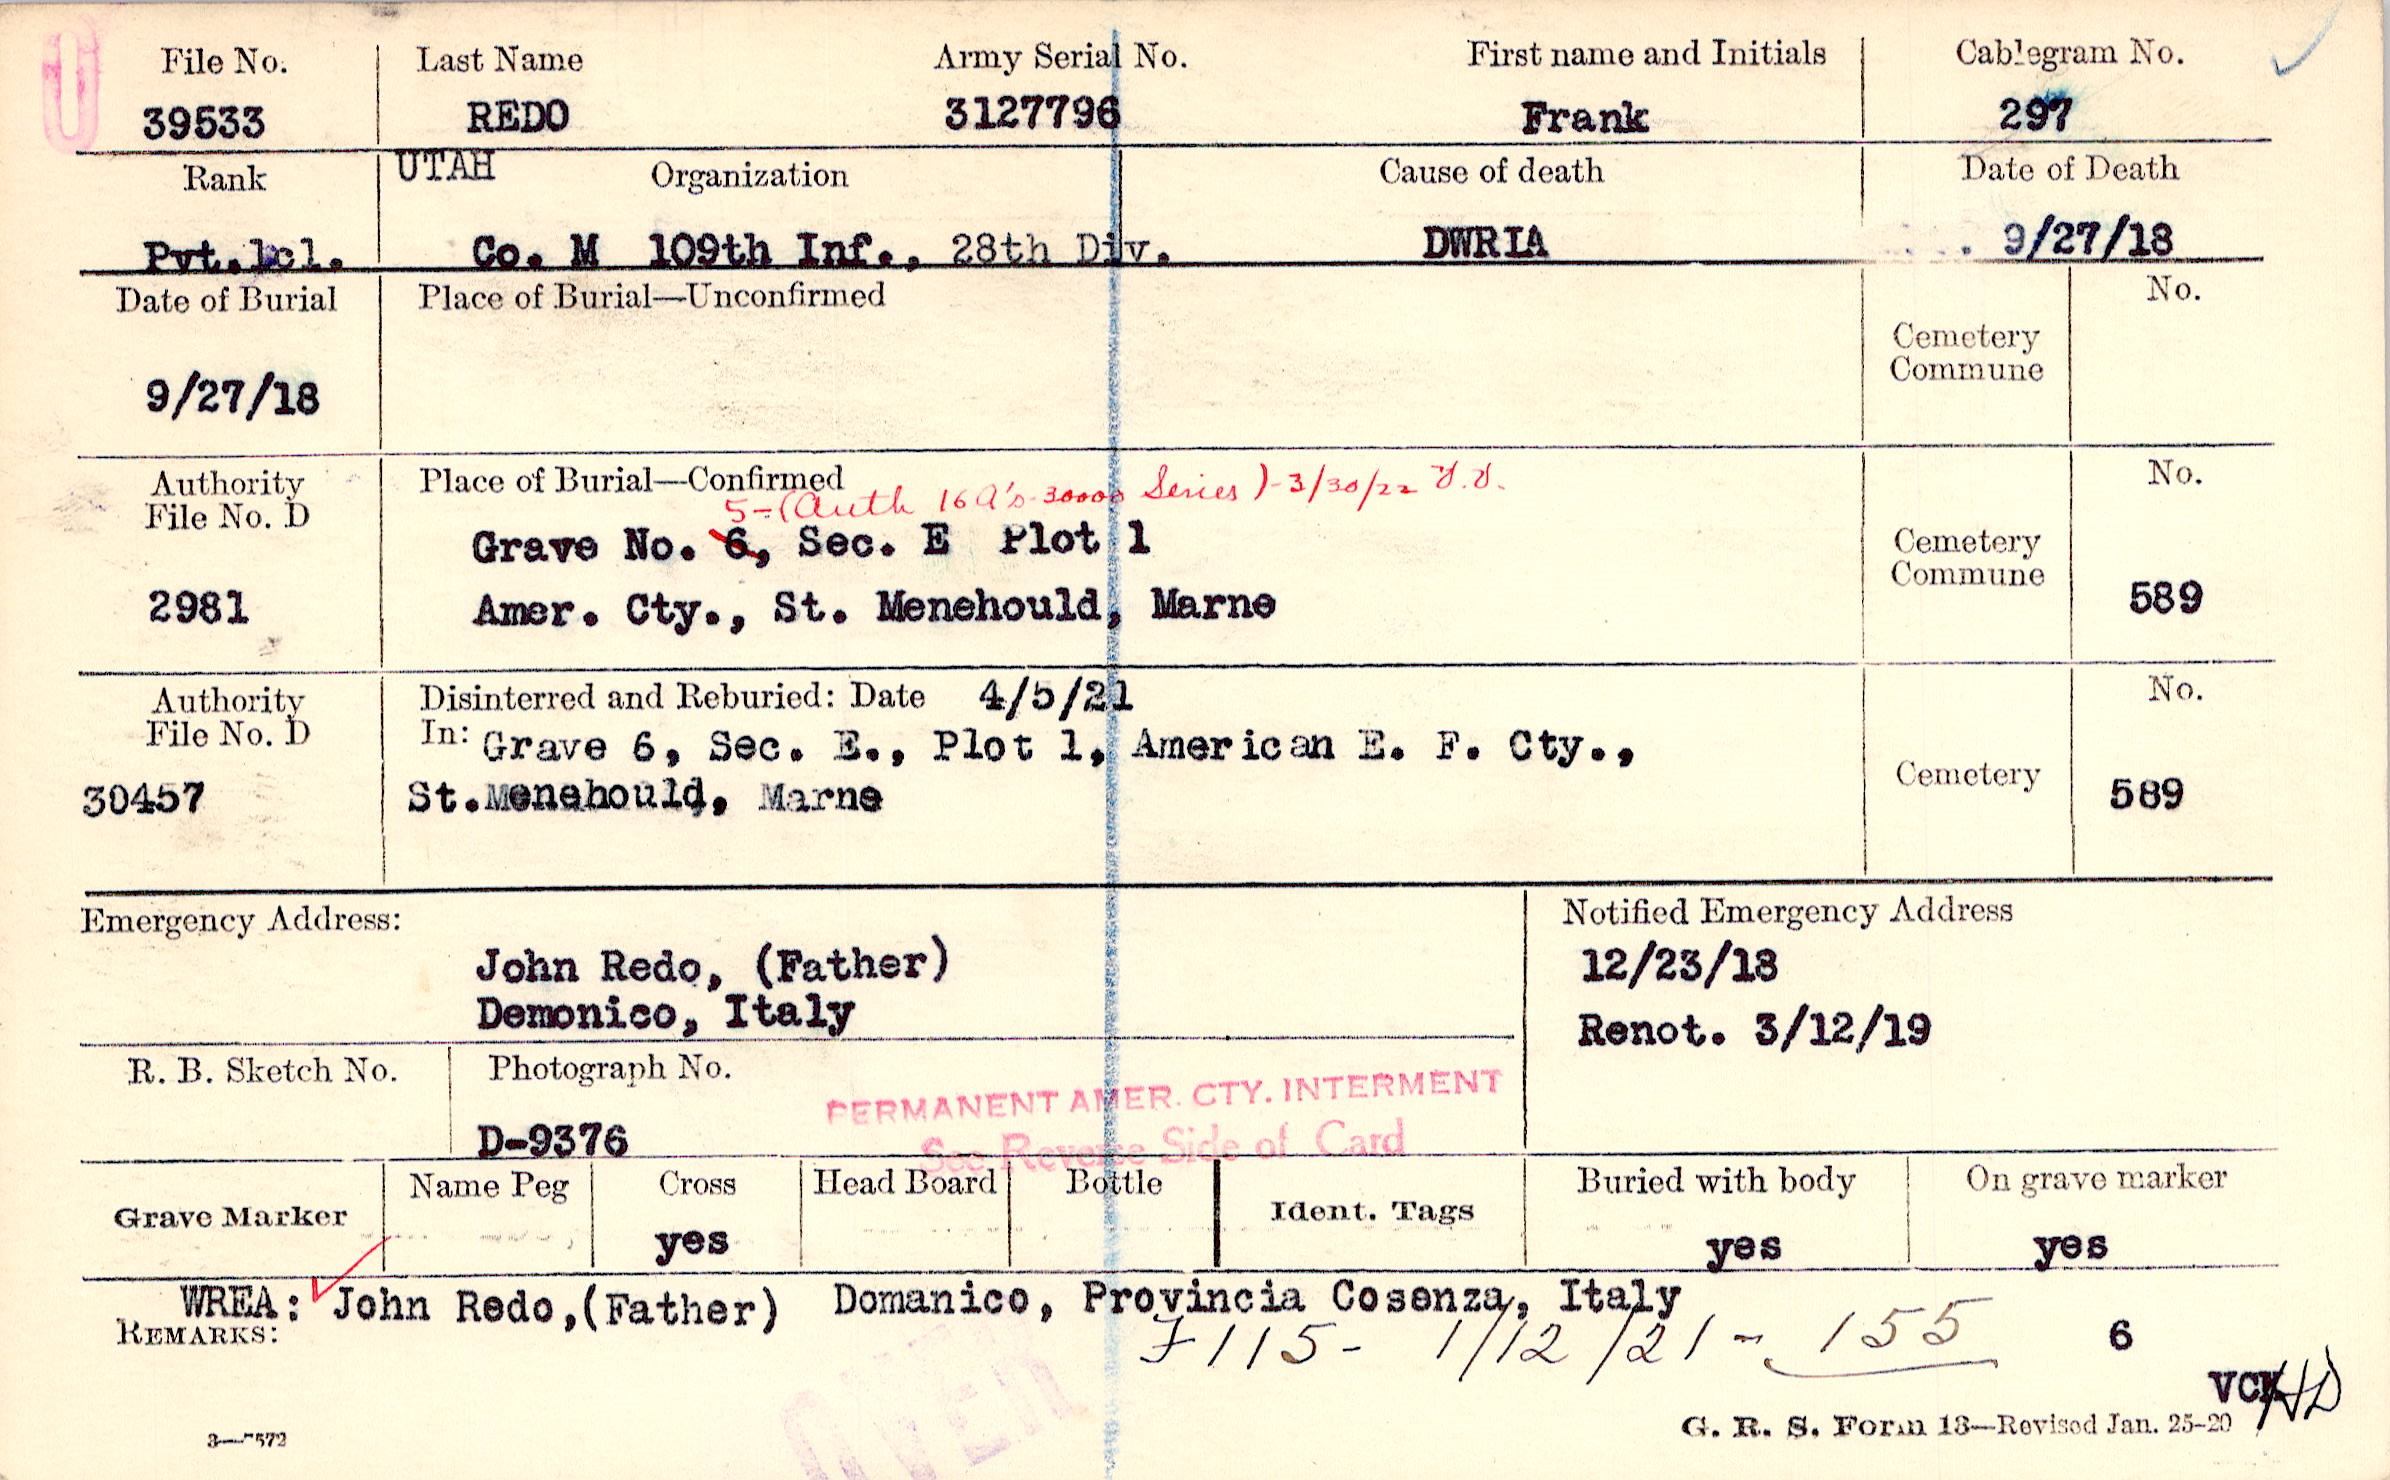 File No. Last Name Army Serial No. First name and Initials Cablegram No.
39533 REDO 3127796 Frank 297
Rank UTAH Organization Cause of death Date of Death
Pvt.1cl. Co. M 109th Inf., 28th Div. DWRIA 9/27/18
Date of Burial Place of Burial—Unconfirmed No.
Cemetery
Commune
9/27/18
Authority Place of Burial—Confirmed No.
File No. D
5-(Auth 16A's-30000 Series)-3/30/22
Grave No. 6, Sec. E Plot 1
Cemetery
Commune
2981 Amer. Cty., St. Menehould, Marne 589
Authority Disinterred and Reburied: Date 4/5/21 No.
File No. D In: Grave 6, Sec. E., Plot 1, American E. F. Cty.,
Cemetery
30457 St.Menehould, Marne 589
Emergency Address: Notified Emergency Address
John Redo, (Father) 12/23/18
Demonico, Italy Renot. 3/12/19
R. B. Sketch No. Photograph No.
PERMANENT AMER. CTY. INTERMENT
D-9376 See Reverse Side of Card
Grave Marker Name Peg Cross Head Board Bottle Ident. Tags Buried with body On grave marker
yes yes yes
WREA: John Redo,(Father) Domanico, Provincia Cosenza, Italy
REMARKS: F115- 1/12/21- 155 6
VCK HD
G. R. S. Form 13—Revised Jan. 25-20